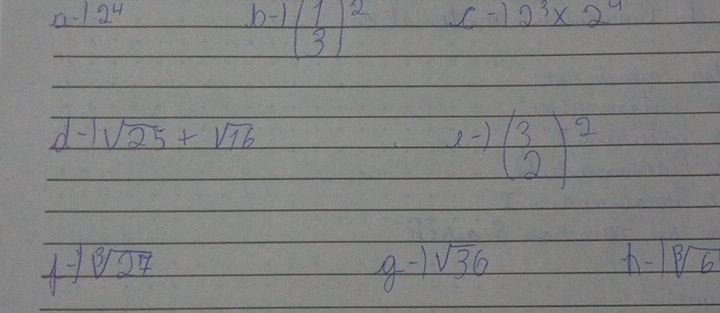 a-) 2⁴ b-) (1/3)² c-) 2³ x 2⁴
d-) √25 + √16 e-) (3/2)²
f-) ³√27 g-) √36 h-) ³√6